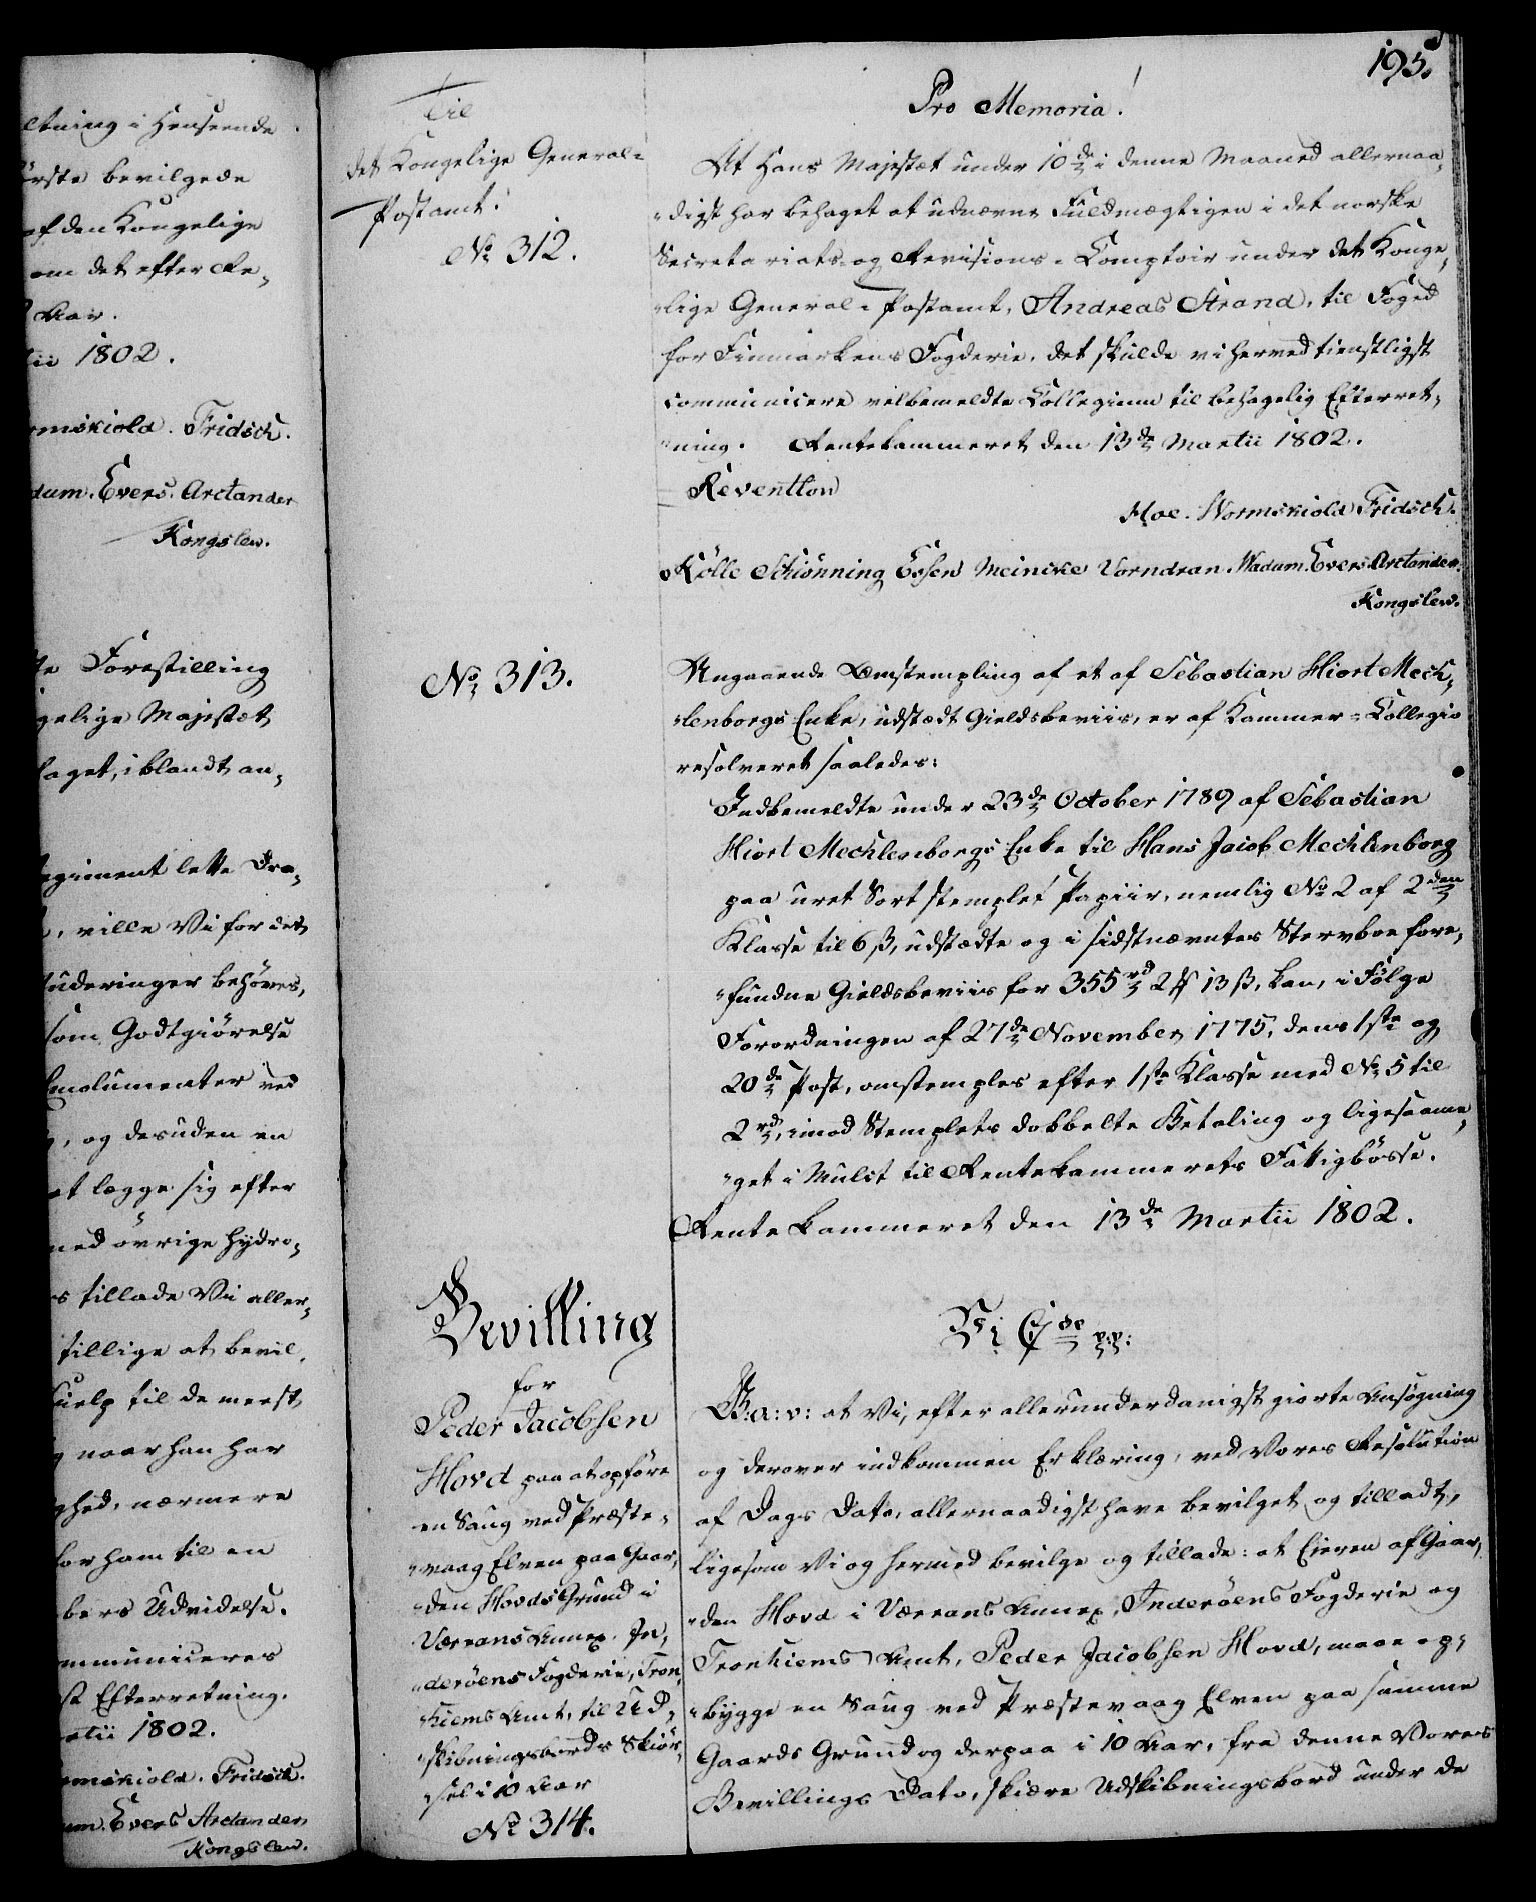 195.
ltning i Henseende
ørste bevilgede
af den Kongelige
om det efter Re-
Aar.
tii 1802.
rmskiold. Fridsch.
dum. Evers. Arctander
Kongslew.
te Forestilling
gelige Majestæt
haget, iblandt an-
egiment lette Dra-
, ville Vi for det
uderinger behøves,
som Godtgiørelse
Emolumenter ved
, og desuden en
at lægge sig efter
med øvrige hydro-
s tillade Vi aller-
tillige at bevil-
hielp til de meest
naar han har
ghed, nærmere
for ham til en
bers Udvidelse.
ommuniceres
st Efterretning.
artii 1802.
rmskiold. Fridsch.
um. Evers Arctander
Kongslew.
Til
det Kongelige General-
Postamt!
No. 312.
Pro Memoria!
At Hans Majestæt under 10de i denne Maaned allernaa-
digst har behaget at udnævne Fuldmægtigen i det norske
Secretariats- og Revisions-Comptoir under det Konge-
lige General-Postamt, Andreas Strand, til Foged
for Finmarkens Fogderie, det skulde vi herved tienstligst
communicere velbemeldte Collegium til behagelig Efterret-
ning. Rentekammeret den 13de Martii 1802.
Reventlow
Moe. Wormskiold Fridsch.
Kölle Schiønning Essen Meincke Vorndran. Wadum. Evers Arctander.
Kongslew.
No. 313.
Angaaende Omstempling af et af Sebastian Hiort Mech-
lenborgs Enke, udstædt Gieldsbeviis, er af Kammer-Collegio
resolveret saaledes:
Indbemeldte under 23de October 1789 af Sebastian
Hiort Mechlenborgs Enke til Hans Jacob Mechlenborg
paa uret Sort stemplet Papiir, nemlig No. 2 af 2den
Klasse til 6 ß, udstædte og i sidstnævntes Stervboe fore-
fundne Gieldsbeviis for 355 rd 2 # 13 ß, kan, i Følge
Forordningen af 27de November 1775, dens 1ste og
20de Post, omstemples efter 1ste Klasse med No. 5 til
2 rd, imod Stemplets dobbelte Betaling og ligesaame-
get i Mulct til Rentekammerets Fattigbøsse.
Rentekammeret den 13de Martii 1802.
Bevilling
for
Peder Jacobsen
Hovd paa at opføre
en Saug ved Præste-
vaag Elven paa Gaar-
den Hovds Grund i
Værrans Annex. In-
derøens Fogderie, Tron-
hiems Amt, til Ud-
skibningsbords Skiør-
sel i 10 Aar
No 314.
Vi C. 7de p:p:
G: a: v: at Vi, efter allerunderdanigst giorte Ansøgning
og derover indkommen Erklæring, ved Vores Resolution
af Dags Dato, allernaadigst have bevilget og tilladt,
ligesom Vi og hermed bevilge og tillade: at Eieren af Gaar-
den Hovd i Værrans Annex, Inderøens Fogderie og
Tronhiems Amt, Peder Jacobsen Hovd, maae op-
bygge en Saug ved Præstevaag Elven paa samme
Gaards Grund og derpaa i 10 Aar, fra denne Vores
Bevillings Dato, skiære Udskibningsbord under de